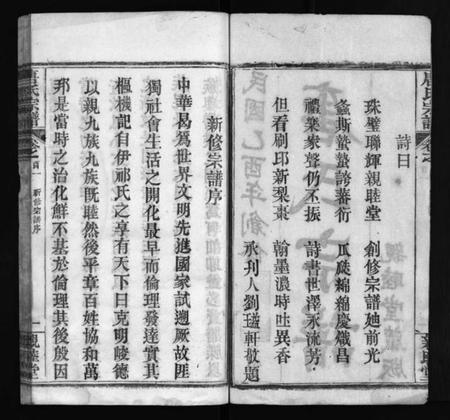 詩曰
珠璧聯輝親睦堂　創修宗譜廸前光
螽斯蟄蟄誇蕃衍　瓜瓞綿綿慶熾昌
禮樂家聲仍丕振　詩書世澤永流芳
但看刷印新梨棗　翰墨濃時吐異香
永刋人劉瑞軒敬題
新修宗譜序
中華曷爲世界文明先進國家試遡厥故匪
獨社會生活之開化最早而倫理發達實其
樞機記自伊祁氏之享有天下曰克明峻德
以親九族九族旣睦然後平章百姓協和萬
邦是當時之治化鮮不基於倫理其後殷因
氏宗譜
卷之首
新修宗譜序
一
親睦堂
民國乙酉年創修